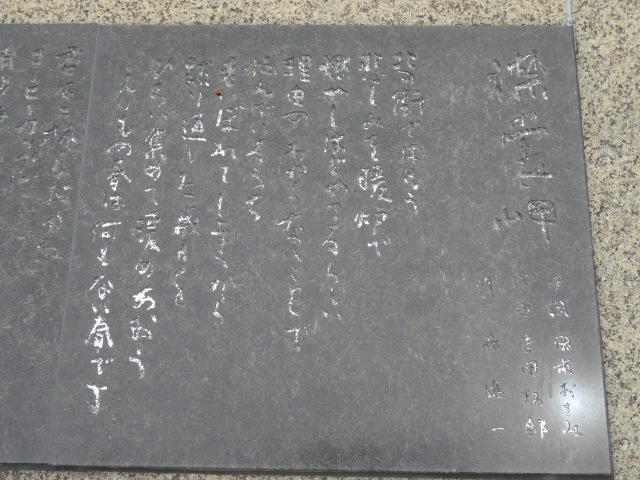 襟裳岬
作詞 岡本おさみ
作曲 吉田拓郎
唄 森進一
北の街ではもう
悲しみを暖炉で
燃やしはじめてるらしい
理由のわからないことで
悩んでいるうち
老いぼれてしまうから
黙り通した歳月を
ひろい集めて暖めあおう
えりもの春は何もない春です